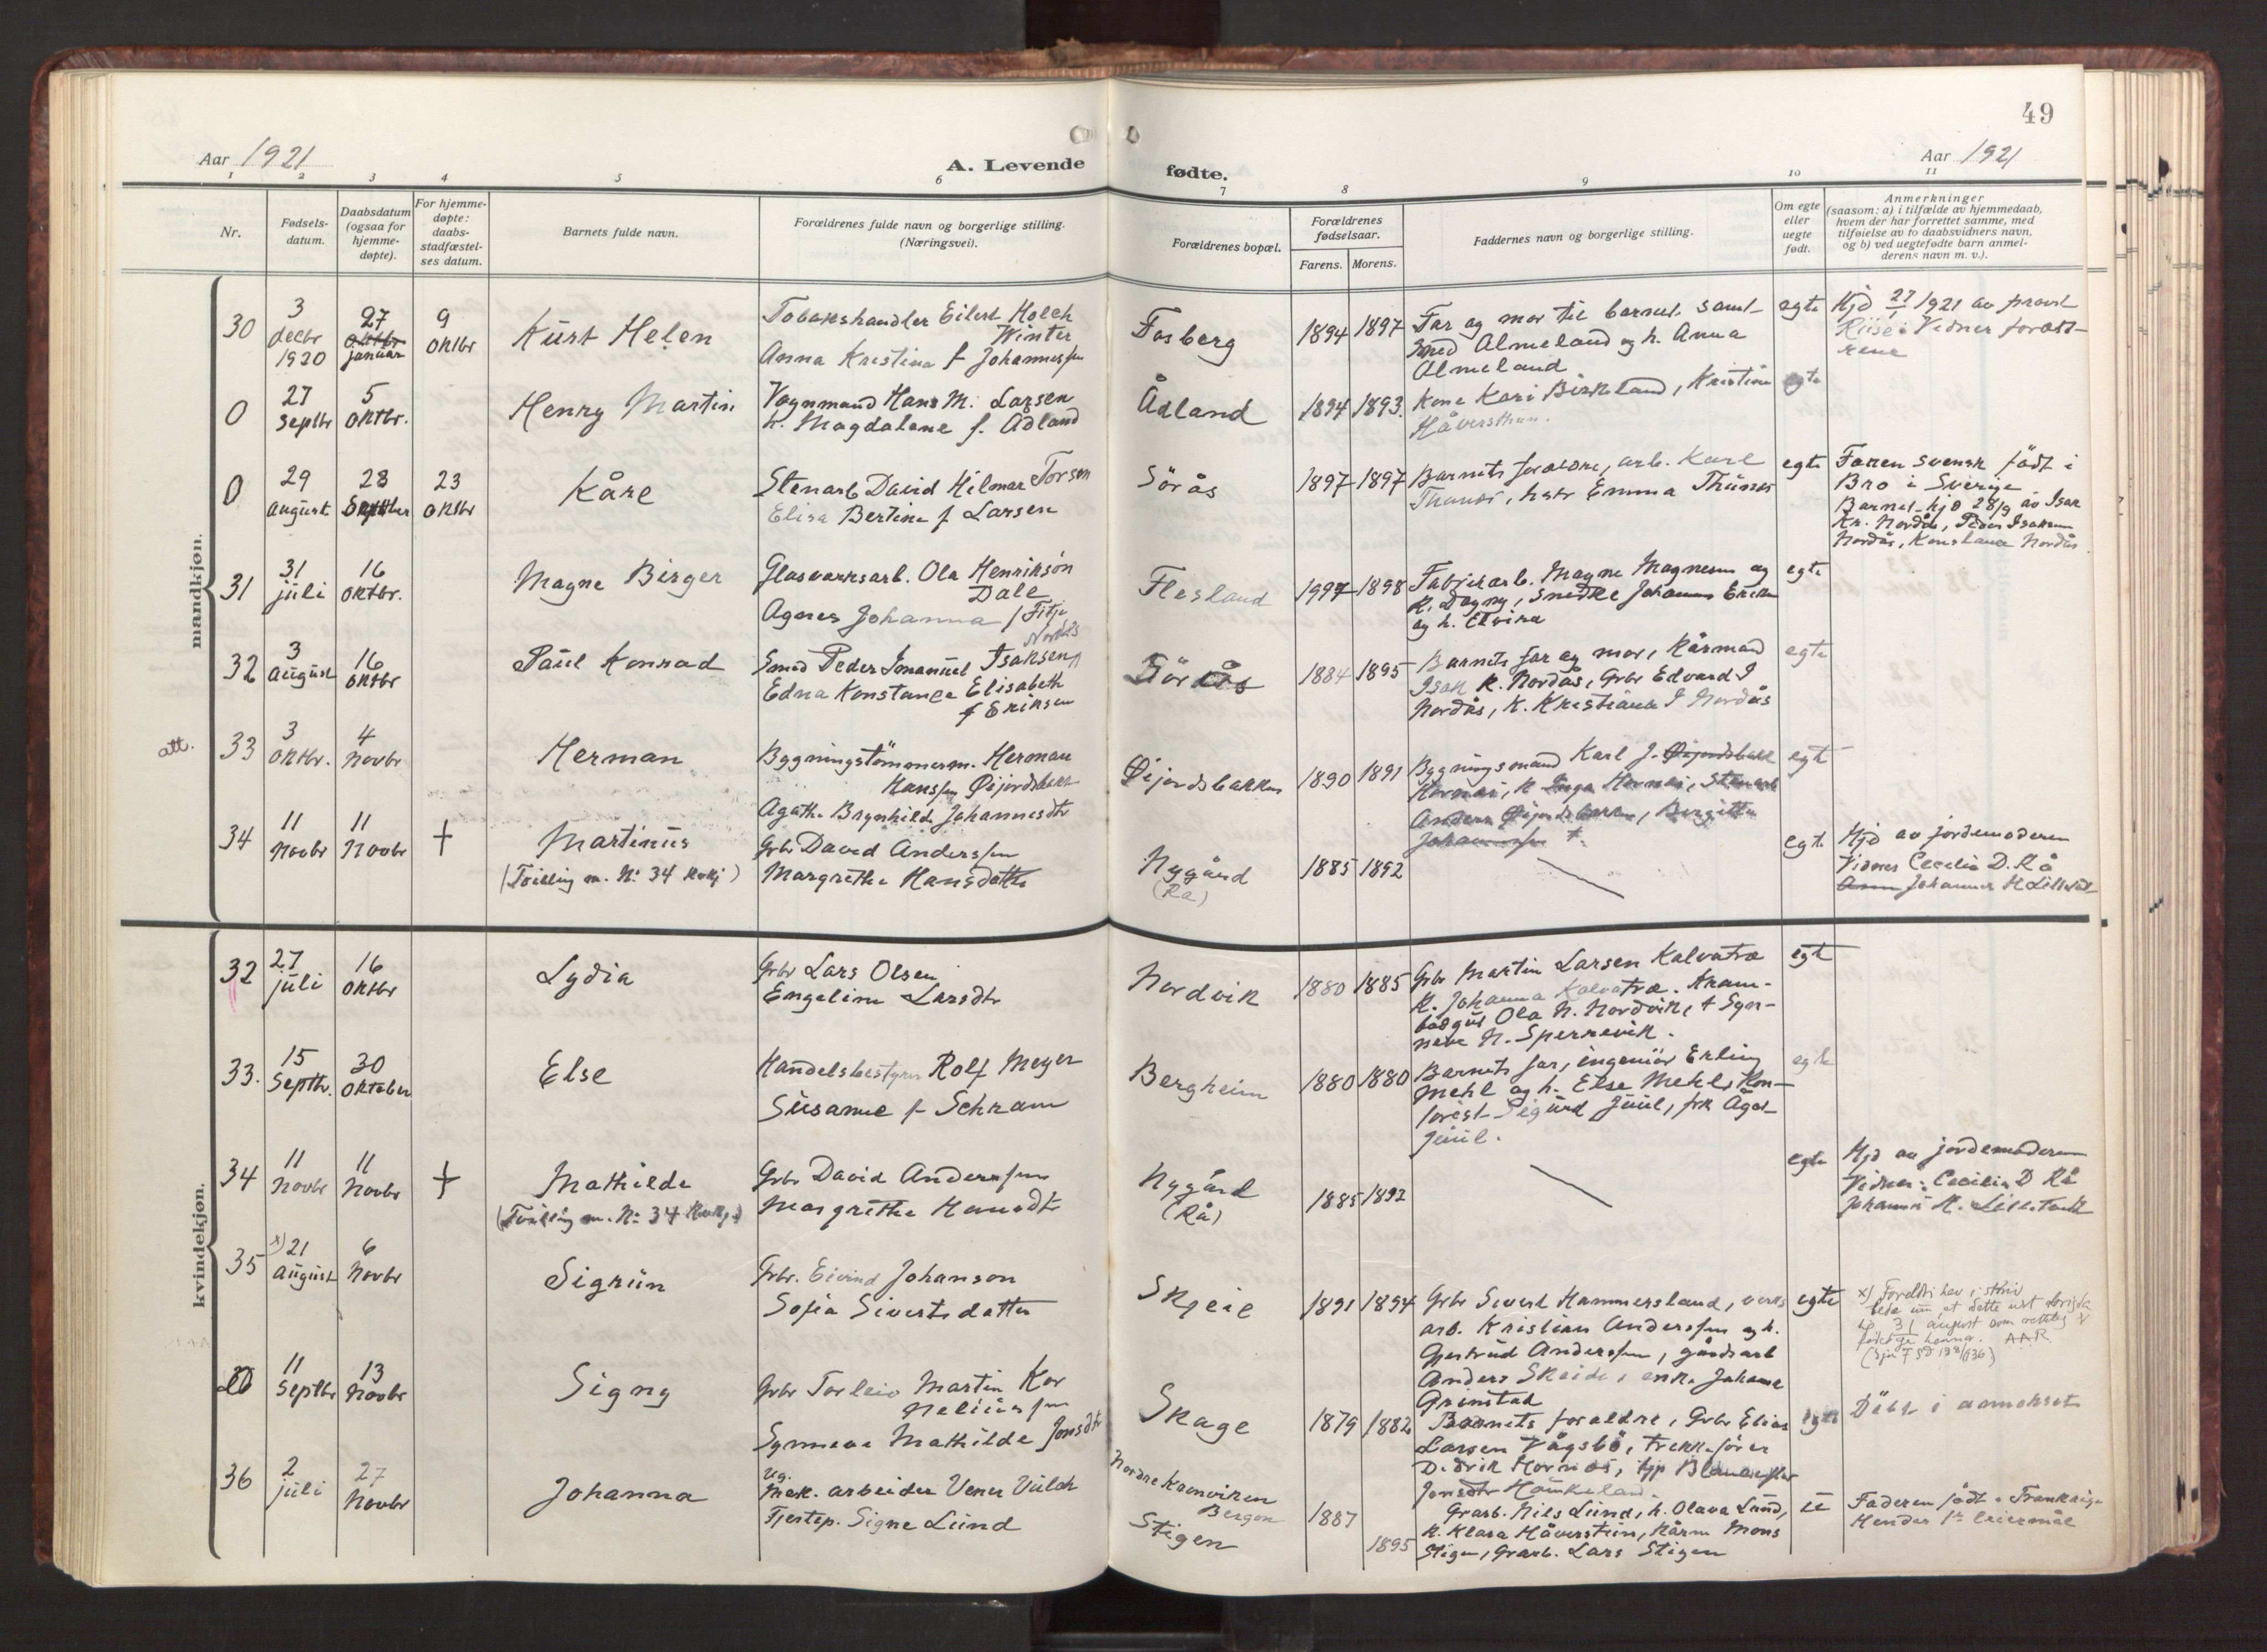 49
Aar 1921
A. Levende
fødte.
Aar 1921
1 2 3 4 5 6 7 8 9 10 11
Nr.
Fødsels-
datum.
Daabsdatum
(ogsaa for
hjemme-
døpte).
For hjemme-
døpte:
daabs-
stadfæstel-
ses datum.
Barnets fulde navn.
Forældrenes fulde navn og borgerlige stilling.
(Næringsvei).
Forældrenes bopæl.
Forældrenes
fødselsaar.
Farens. Morens.
Faddernes navn og borgerlige stilling.
Om egte
eller
uegte
født.
Anmerkninger
(saasom: a) i tilfælde av hjemmedaab,
hvem der har forrettet samme, med
tilføielse av to daabsvidners navn,
og b) ved uegtefødte barn anmel-
derens navn m. v.).
mandkjøn.
30
3
decbr
1920
27
oktbr
januar
9
oktbr
Kurt Helen
Tobakshandler Eilert Holck
Winter
Anna Kristina f Johannessen
Fosberg
1894 1897
Far og mor til barnet samt
Smed Almeland og h. Anna
Almeland
egte
Hjd 27/1 1921 av provst
Riise Vidner foræld-
rene
0
27
septbr
5
oktbr.
Henry Martin
Vognmand Hans M. Larsen
h. Magdalene f. Ådland
Ådland
1894 1893.
Kone Kari Birkeland, Kristine
Håversthun.
egte
0
29
august
28
septber
23
oktbr
Kåre
Stenarb David Hilmar Torsen
Elisa Bertine f Larsen
Sörås
1897 1897
Barnets forældre, arb. Karl
Thunes, hstr Emma Thunes
egte
Faren svensk født i
Bro i Sverige
Barnet hjd 28/9 av Isak
Kr. Nordås, Peder Isaksen
Nordås, Konstanse Nordås
31
31
juli
16
oktbr.
Magne Birger
Glasverksarb. Ola Henrikson
Dale
Agnes Johanna f Fitje
Flesland
1897 1898
Fabrikarb. Magne Magnesen og
k. Dagny, Snedker Johannes Eriksen
og h. Elvira
egte
32
3
august
16
oktbr
Paul Konrad
Smed Peder Imanuel Isaksen
Nordås
Edna Konstanse Elisabeth
f Eriksen
Sörås
1884 1895
Barnets far og mor, Kårmand
Isak K. Nordås, Grbr Edvard I
Nordås, K. Kristiane I Nordås
egte
att.
33
3
oktbr.
4
novbr
Herman
Bygningstömmerm. Herman
Hanssen Øijordsbakk
Agathe Brynhild Johannesdtr
Øijordsbakken
1890 1891
Bygningsmand Karl J. Øijordsbakk
Hornæs, K Inga Hornæs, Stenarb
Anders Øijordsbakken, Bergitte
Johannessen
egte
34
11
Novbr
11
Novbr
†
Martinus
(Tvilling m. No 34 kvkj)
Grbr David Anderssen
Margrethe Hansdatter
Nygård
(Rå)
1885 1892
egte
Hjd av jordemoderen
Vidner Cecelia D. Rå
Johannes H Lilletvedt
kvindekjøn.
32
27
juli
16
oktbr
Lydia
Grbr Lars Olsen
Engeline Larsdtr
Nordvik
1880 1885
Grbr Martin Larsen Kalvatræ
K. Johanna Kalvatræ. Kram-
bodgut Ola N. Nordvik, + Syn-
neve N. Sperrevik.
egte
33.
15
Septbr.
30
oktober
Else
Handelsbestyrer Rolf Meyer
Susanne f Schram
Bergheim
1880 1880
Barnets far, ingeniör Erling
Mehl og h. Else Mehl, Kon-
torist Sigurd Juul, frk Agot
Juul.
egte
34
11
Novbr
11
Novbr
†
Mathilde
(Tvilling m. No 34 Mankj.)
Grbr David Anderssen
Margrethe Hansdtr
Nygård
(Rå)
1885 1892
egte
Hjd av jordemoderen
Vidner: Cecilia D Rå
Johannes H. Lilletvedt
35
x) 21
august
6
Novbr
Sigrun
Grbr. Eivind Johanson
Sofia Sivertsdatter
Skjeie
1891 1894
Grbr Sivert Hammersland, verks
arb. Kristian Anderssen og h.
Gjertrud Anderssen, gårdsarb
Anders Skeide, enke Johanne
Grimstad
egte
x) Foreldri hev i skriv
bede um, at dette vert
til 31 august som rettleg
fødedag hennar. AAR
0
11
Septbr
13
Novbr
Signy
Grbr Torleiv Martin Kor
neliussen
Synneva Mathilde Jonsdtr
Skage
1879 1882
Barnets forældre, Grbr Elias
Larsen Vågsbö, trekkefører
Didrik Hornes, tjp
Jonsdtr Haukeland.
egte
Döbt i annekset
36
2
juli
27
Novbr
Johanna
Ug.
Mek. arbeider Vener Vulck
Tjestep. Signe Lund
Nordre Kronviken
Bergen
Stigen
1887
1895
Grarb. Nils Lund, h. Olava Lund,
K. Klara Håverstun, Kårm Mons
Stigen, Grarb. Lars Stigen
ue
Faderen født i Frankrige
Hendes 1ste leiermål